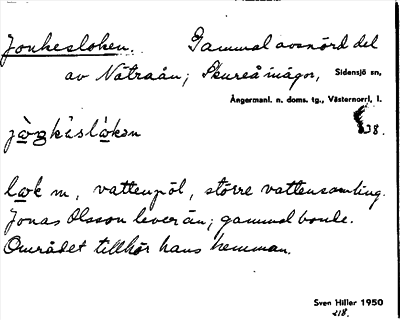 Jonkesloken. Gammal avsnörd del
av Nätraån; Skureå inägor, Sidensjö sn,
Ångermanl. n. doms. tg., Västernorrl, l.
38.
lωk m, vattenpöl, större vattensamling.
Jonas Olsson lever än; gammal bonde.
Området tillhör hans hemman.
Sven Hiller 1950
218.